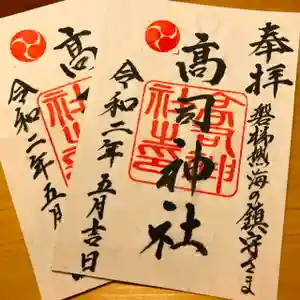 奉拝
磐梯熱海の鎮守さま
高司神社
令和二年 五月吉日
高
令和二年 五月